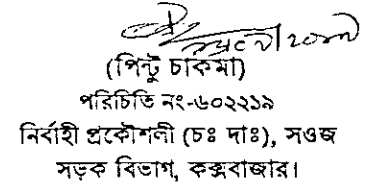 (পিন্টু চাকমা)
পরিচিতি নং-৬০২২১৯
নির্বাহী প্রকৌশলী (চঃ দাঃ), সওজ
সড়ক বিভাগ, কক্সবাজার।